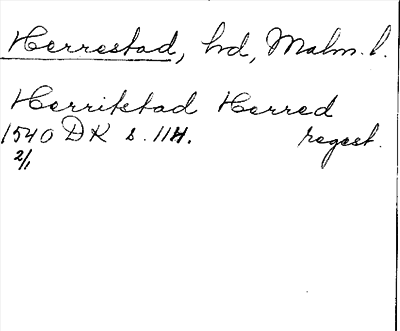 Herrestad, hd, Malm. l.
Herritstad Herred
1540 DK s. 114. regest.
2/1